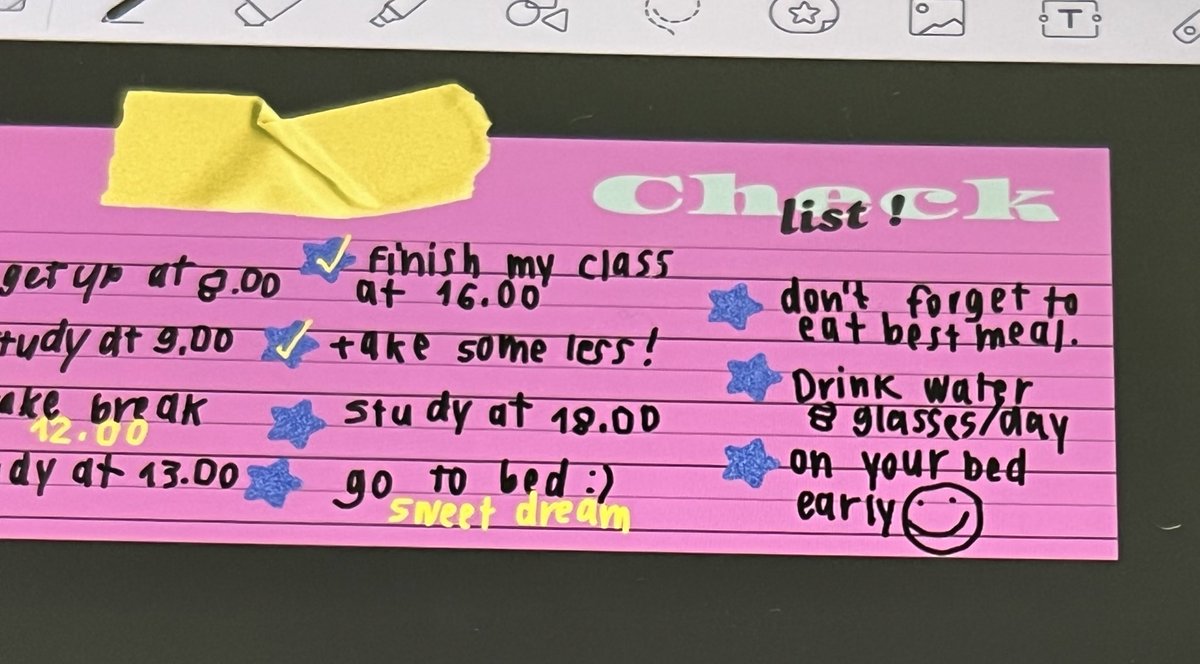 Check
list !
get up at 8.00
study at 9.00
take break
12.00
dy at 13.00
finish my class
at 16.00
take some less!
study at 18.00
go to bed :)
sweet dream
don't forget to
eat best meal.
Drink water
8 glasses/day
on your bed
early
T